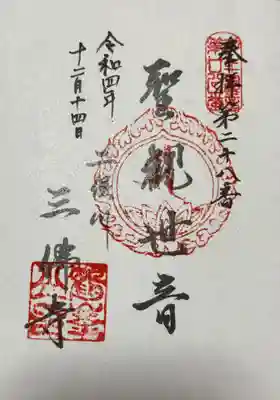 奉拝 第二十八番
聖観世音
令和四年
十二月十四日
三佛寺